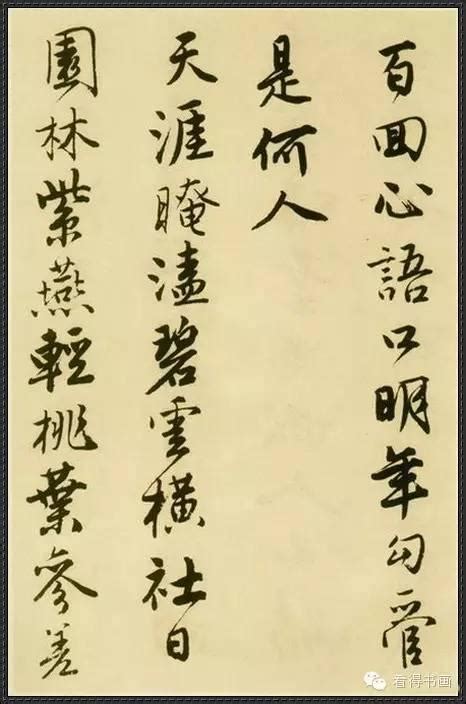 百回心語口明年勾管
是何人
天涯晻溘碧雲橫社日
園林紫燕輕桃葉參差
看得书画